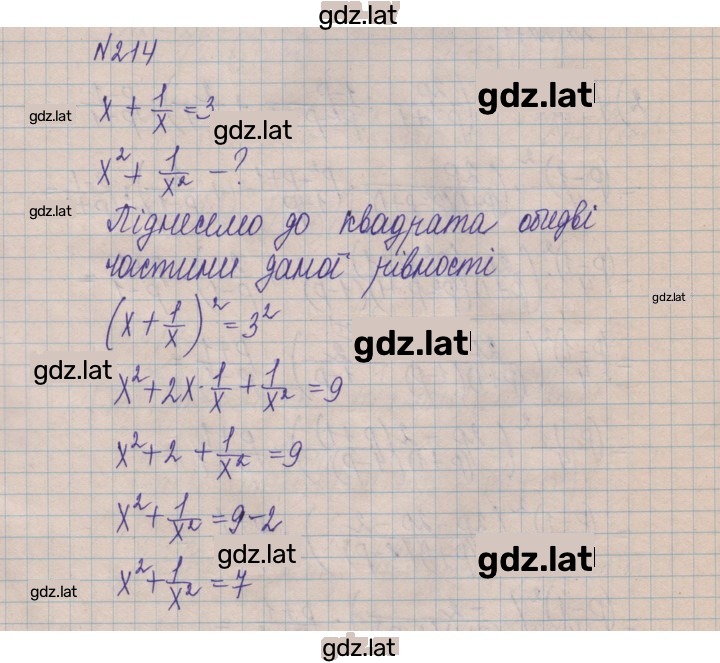 gdz.lat
№214
gdz.lat
x + 1/x = 3
gdz.lat
gdz.lat
x² + 1/x² - ?
gdz.lat
Піднесемо до квадрата обидві
частини даної рівності
gdz.lat
(x + 1/x)² = 3²
gdz.lat
gdz.lat
x² + 2x · 1/x + 1/x² = 9
x² + 2 + 1/x² = 9
x² + 1/x² = 9 - 2
gdz.lat
gdz.lat
x² + 1/x² = 7
gdz.lat
gdz.lat